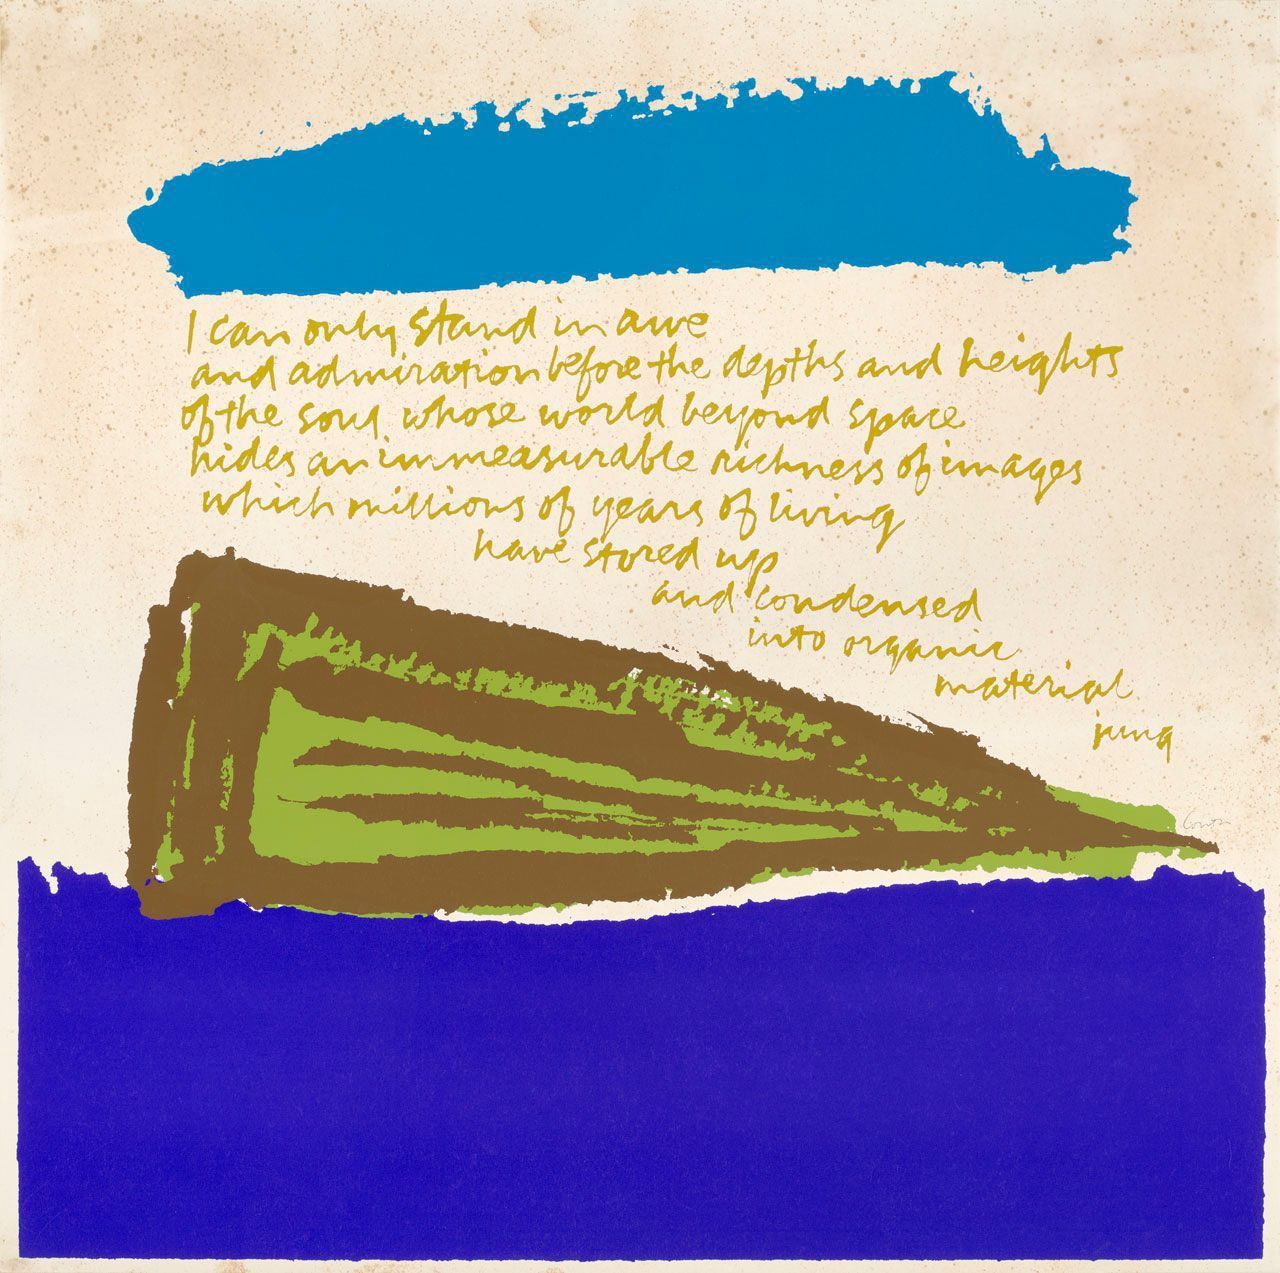 I can only stand in awe
and admiration before the depths and heights
of the soul whose world beyond space
hides an immeasurable richness of images
which millions of years of living
have stored up
and condensed
into organic
material
jung